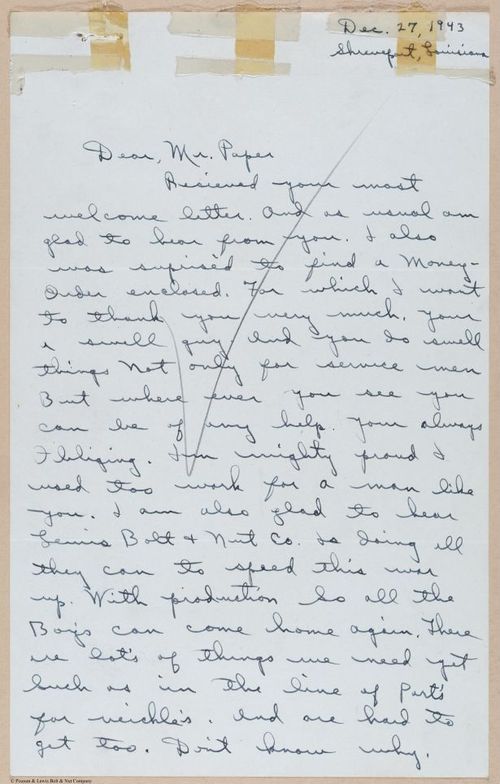 Dec. 27, 1943
Shreveport, Louisiana
Dear, Mr. Paper
Recieved your most
welcome letter. And as usual am
glad to hear from you. I also
was suprised to find a Money-
Order enclosed. For which I want
to thank you very much. Your
a swell guy. And you do swell
things Not only for service men
But where ever you see you
can be of any help. your always
Obliging. I'm mighty proud I
used too work for a man like
you. I am also glad to hear
Lewis Bolt & Nut Co. Is doing all
they can to speed this war
up. With production So all the
Boys can come home again. There
are lot's of things we need yet
Such as in the line of Part's
for veichle's. And are hard to
get too. Don't know why.
© Pearson & Lewis Bolt & Nut Company